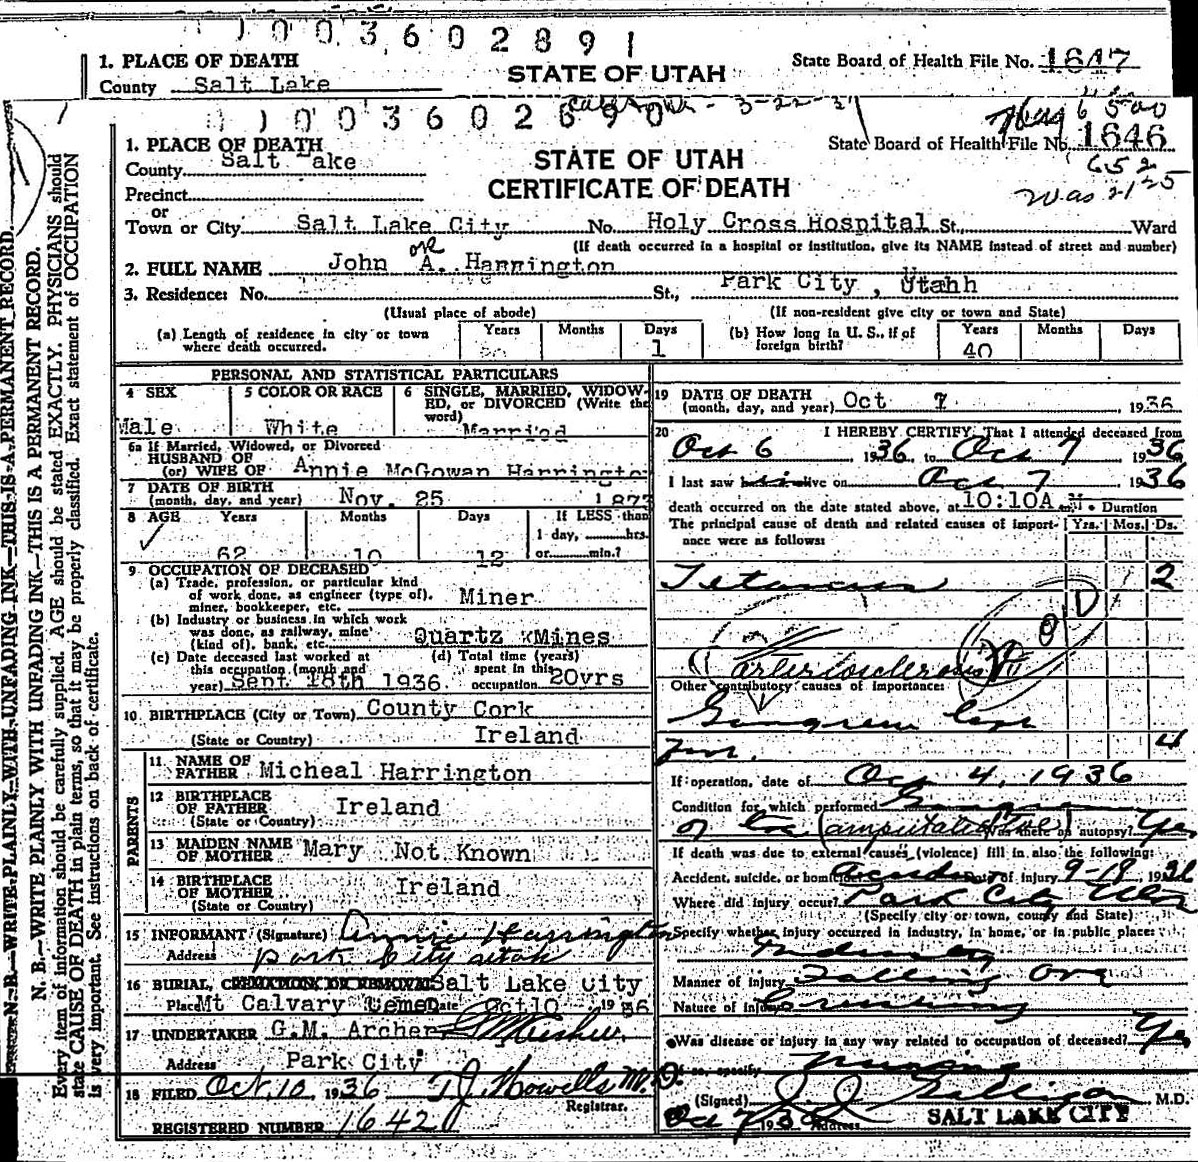 1003602891
1. PLACE OF DEATH
STATE OF UTAH
State Board of Health File No. 1647
County Salt Lake
1003602890
3-22-3
1. PLACE OF DEATH
STATE OF UTAH
State Board of Health File No. 1646
County Salt Lake
CERTIFICATE OF DEATH
652
Was 2125
Precinct
or
Town or City Salt Lake City No. Holy Cross Hospital St., Ward
(If death occurred in a hospital or institution, give its NAME instead of street and number)
2. FULL NAME John or A. Harrington
3. Residence: No. St., Park City, Utahh
(Usual place of abode) (If non-resident give city or town and State)
(a) Length of residence in city or town where death occurred. Years Months Days 1
(b) How long in U. S., if of foreign birth? Years 40 Months Days
PERSONAL AND STATISTICAL PARTICULARS
4 SEX Male
5 COLOR OR RACE White
6 SINGLE, MARRIED, WIDOWED, or DIVORCED (Write the word) Married
6a If Married, Widowed, or Divorced
HUSBAND OF
(or) WIFE OF Annie McGowan Harringto
7 DATE OF BIRTH
(month, day, and year) Nov. 25 1873
8 AGE Years 62 Months 10 Days 12 If LESS than 1 day, hrs. or min.?
9 OCCUPATION OF DECEASED
(a) Trade, profession, or particular kind of work done, as engineer (type of), miner, bookkeeper, etc. Miner
(b) Industry or business in which work was done, as railway, mine (kind of), bank, etc. Quartz Mines
(c) Date deceased last worked at this occupation (month and year) Sept 18th 1936
(d) Total time (years) spent in this occupation 20yrs
10 BIRTHPLACE (City or Town) County Cork
(State or Country) Ireland
PARENTS
11 NAME OF FATHER Micheal Harrington
12 BIRTHPLACE OF FATHER (State or Country) Ireland
13 MAIDEN NAME OF MOTHER Mary Not Known
14 BIRTHPLACE OF MOTHER (State or Country) Ireland
15 INFORMANT (Signature) Annie Harrington
Address Park City Utah
16 BURIAL, CREMATION OR REMOVAL Salt Lake City
Place Mt Calvary Ceme Date Oct 10 1936
17 UNDERTAKER G.M. Archer
Address Park City
18 FILED Oct, 10, 1936 T J Howells M.D.
Registrar.
REGISTERED NUMBER 1642
19 DATE OF DEATH
(month, day, and year) Oct 7, 1936
20 I HEREBY CERTIFY, That I attended deceased from
Oct 6 1936, to Oct 7 1936
I last saw him alive on Oct 7 1936
death occurred on the date stated above, at 10:10A M. Duration
The principal cause of death and related causes of importance were as follows: Yrs. Mos. Ds.
Tetanus 2
Arteriosclerosis
Other contributory causes of importance:
Gangrene
4
If operation, date of Oct 4, 1936
Condition for which performed Gangrene
of toe (amputation toe) Was there an autopsy? Yes
If death was due to external causes (violence) fill in also the following:
Accident, suicide, or homicide Accident Date of injury 9-19, 1936
Where did injury occur? Park City Utah
(Specify city or town, county and State)
Specify whether injury occurred in industry, in home, or in public place:
Industry
Manner of injury Falling Ore
Nature of injury Crushing
Was disease or injury in any way related to occupation of deceased? Yes
If so, specify Mining
(Signed) M.D.
Oct 7 1936 Address SALT LAKE CITY
N. B.—WRITE PLAINLY WITH UNFADING INK—THIS IS A PERMANENT RECORD.
N. B.—WRITE PLAINLY WITH UNFADING INK—THIS IS A PERMANENT RECORD.
Every item of information should be carefully supplied. AGE should be stated EXACTLY. PHYSICIANS should
state CAUSE OF DEATH in plain terms, so that it may be properly classified. Exact statement of OCCUPATION
is very important. See instructions on back of certificate.